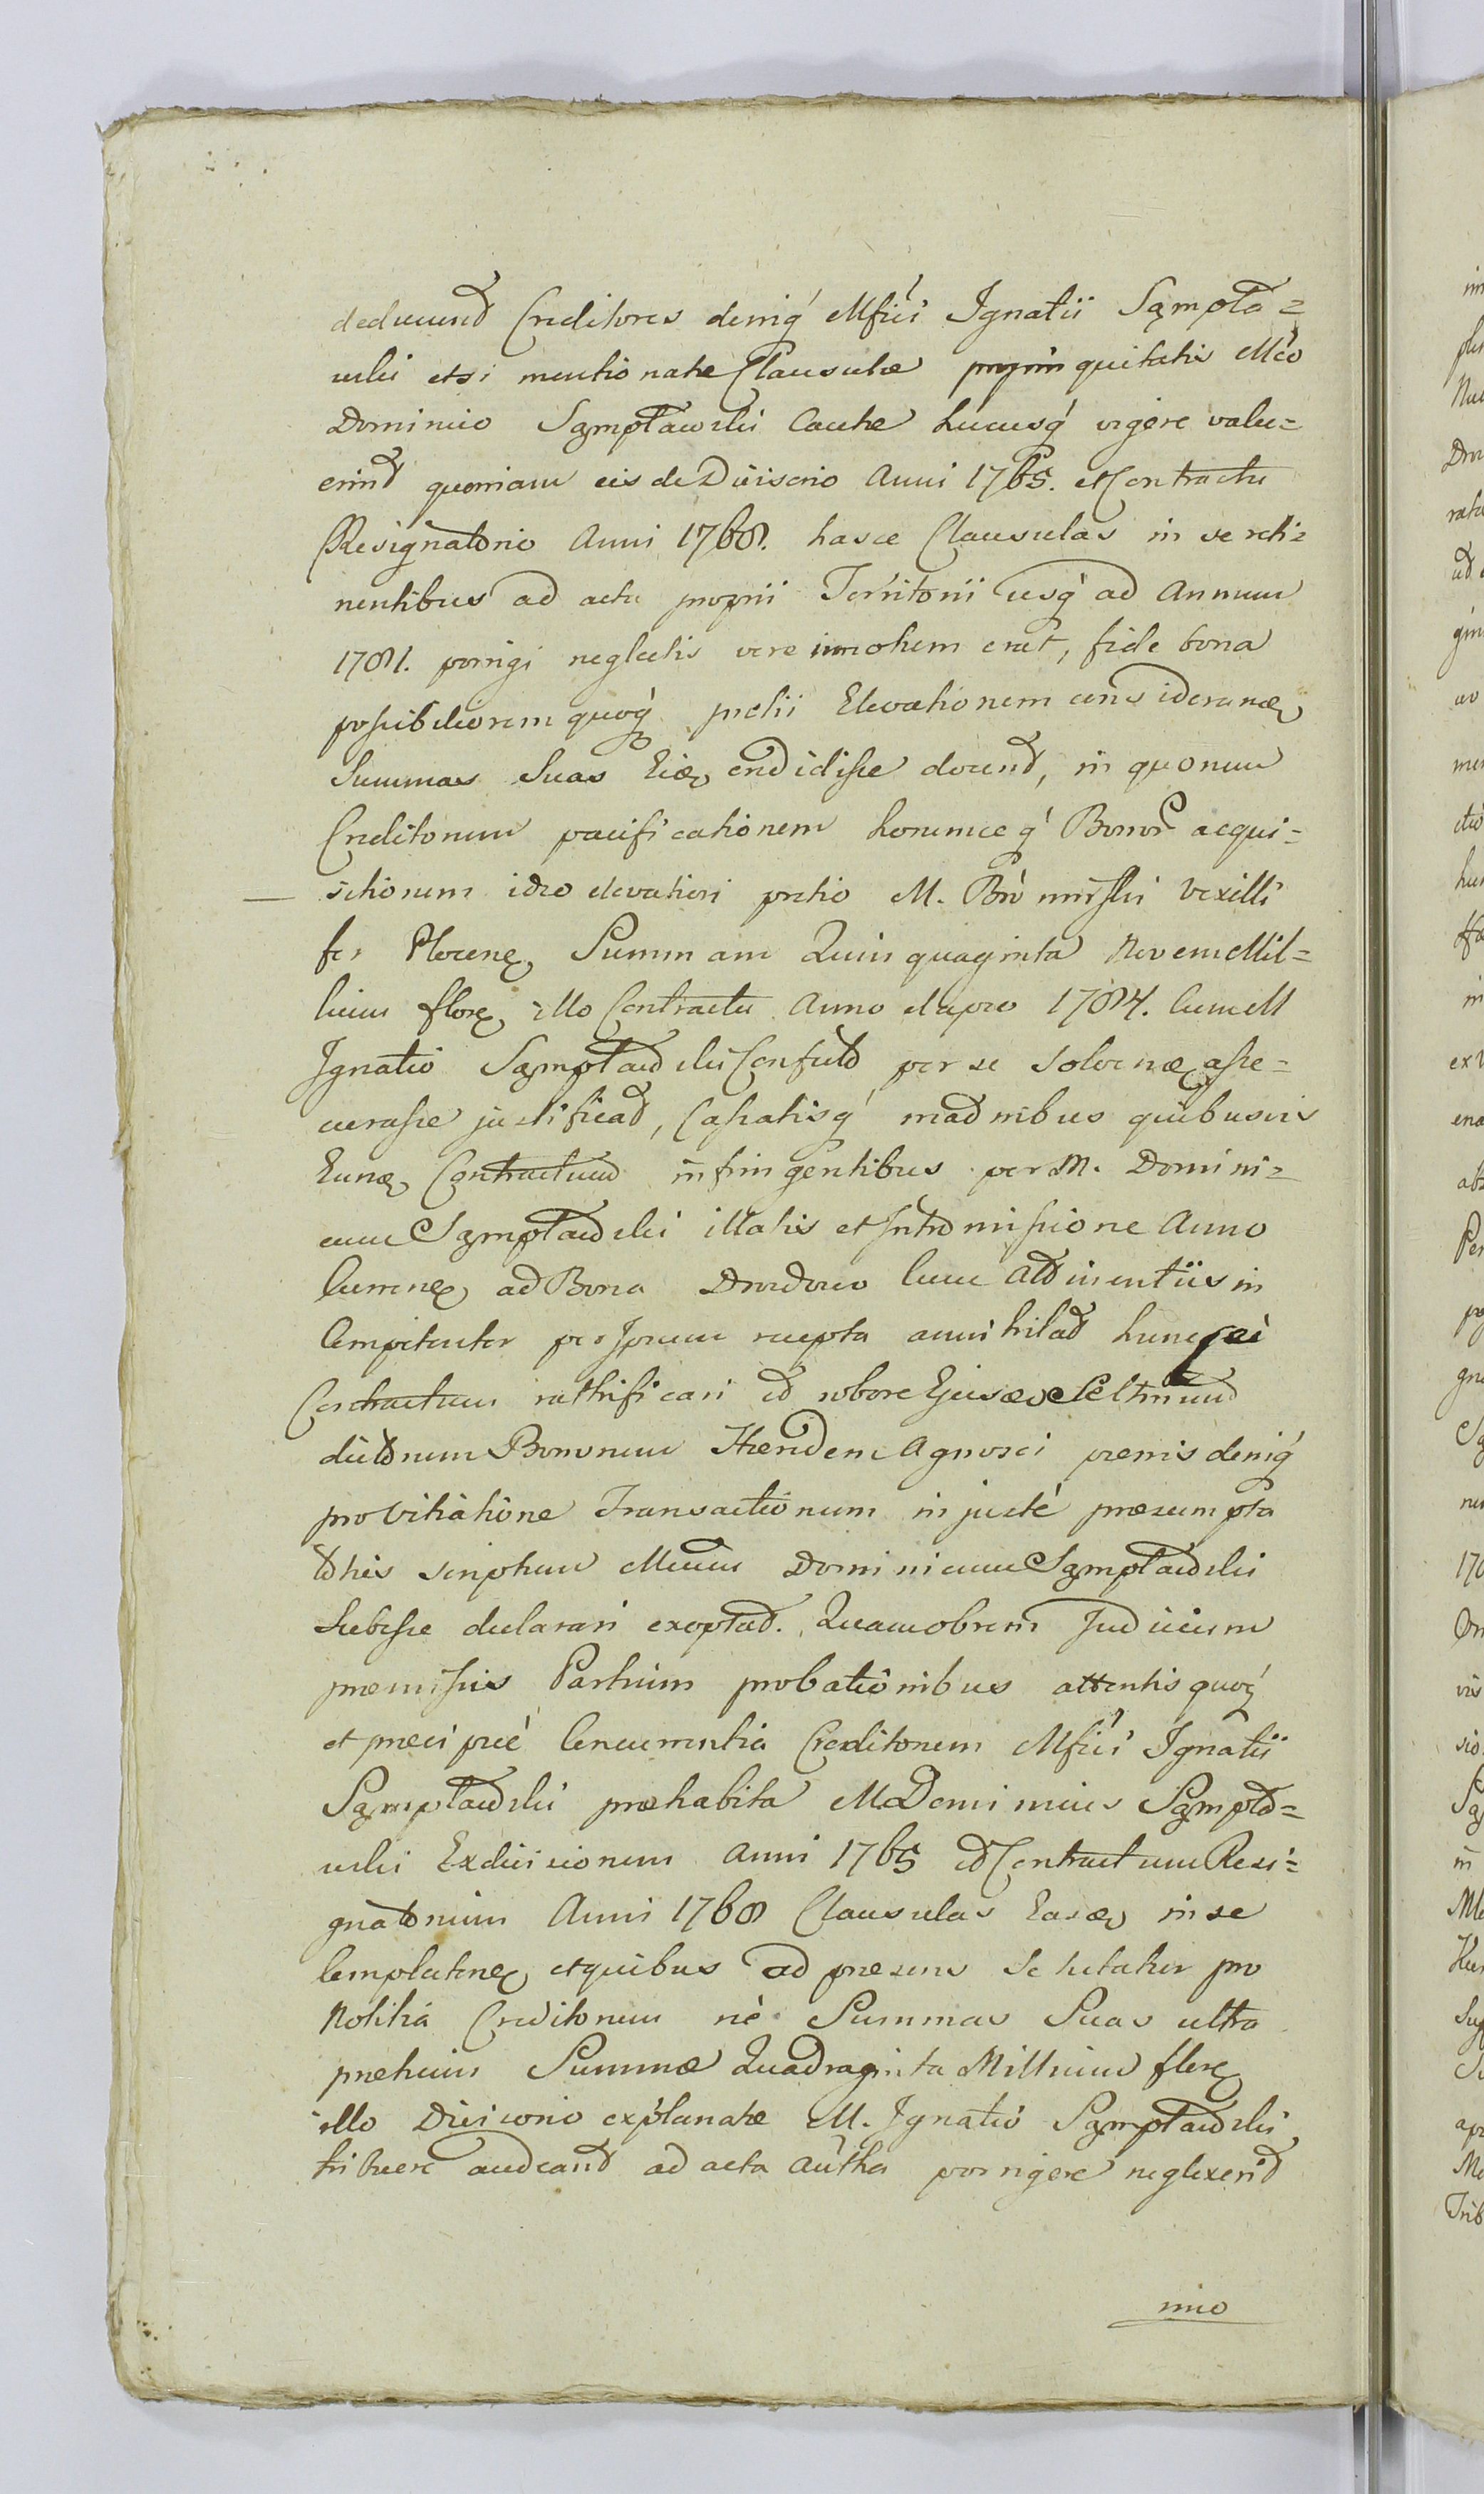 deducund Creditores deniq́ Mfici Ignatii Sąmpła=
wski etsi mentionatæ Clausulæ propinquitatis Mco
Dominico Sąmpławski Cautæ hucusq́ vigere value=
erint quoniam eis de Divisorio Anni 1765. et Contractu
Resignatorio Anni 1768. hasce Clausulas in se reti=
nentibus ad acta proprii Territorii usq́ ad Annum
1781. porrigi neglectis vere immo erat, fide bona
possibiliorem quoq́ pretii Elevationem considerańē
Summas Suas credidisse docend, in quorum
Creditorum pacificationem horumce q́ Bonor acqui=
sitionem ideo elevatiori pretio M. Vexilli
fer Plocenē Summam Quinquaginta Novem Mil=
lium florē illo Contractu Anno elapso 1784. cum M
Ignatio Sąmpławski Confecto per se solvenæ asse=
verasse justificat, Cassatisq́ quibusvis
Contractum infringentibus per M. Domini=
cum Sąmpławski illatis et Intromissione Anno
Currenē ad Bona Drozdowo cum Attinentiis in
Competenter per Ipsum recepta annihilat hunc
Contractum rathificari et robore Ejusdē
dictorum Bonorum Hærendem Agnosci premis deniq́
pro Vitiatione Transactionum injustè præsumpta
scriptum Mcum Dominicum Sąmpławski
Subesse declarari exoptat. Quamobrem Judicium
præmissis Partium probationibus attentis quoq́
et præcipuè Concurrentia Creditorum Mfici Ignatii
Sąmpławski præhabita M. Dominicus Sąmpła=
wski Exdivisionem Anni 1765 et Contractum Resi=
gnatorium Anni 1768 Clausulas Easdē in se
Complectenē et quibus ad præsens Se tutatur pro
Notitia Creditorum nè Summas Suas ultra
pretium Summæ Quadraginta Millium florē
illo Divisorio explanatæ M. Ignatio Sąmpławski
tribuere audeant ad acta autha porrigere neglexerit
imo